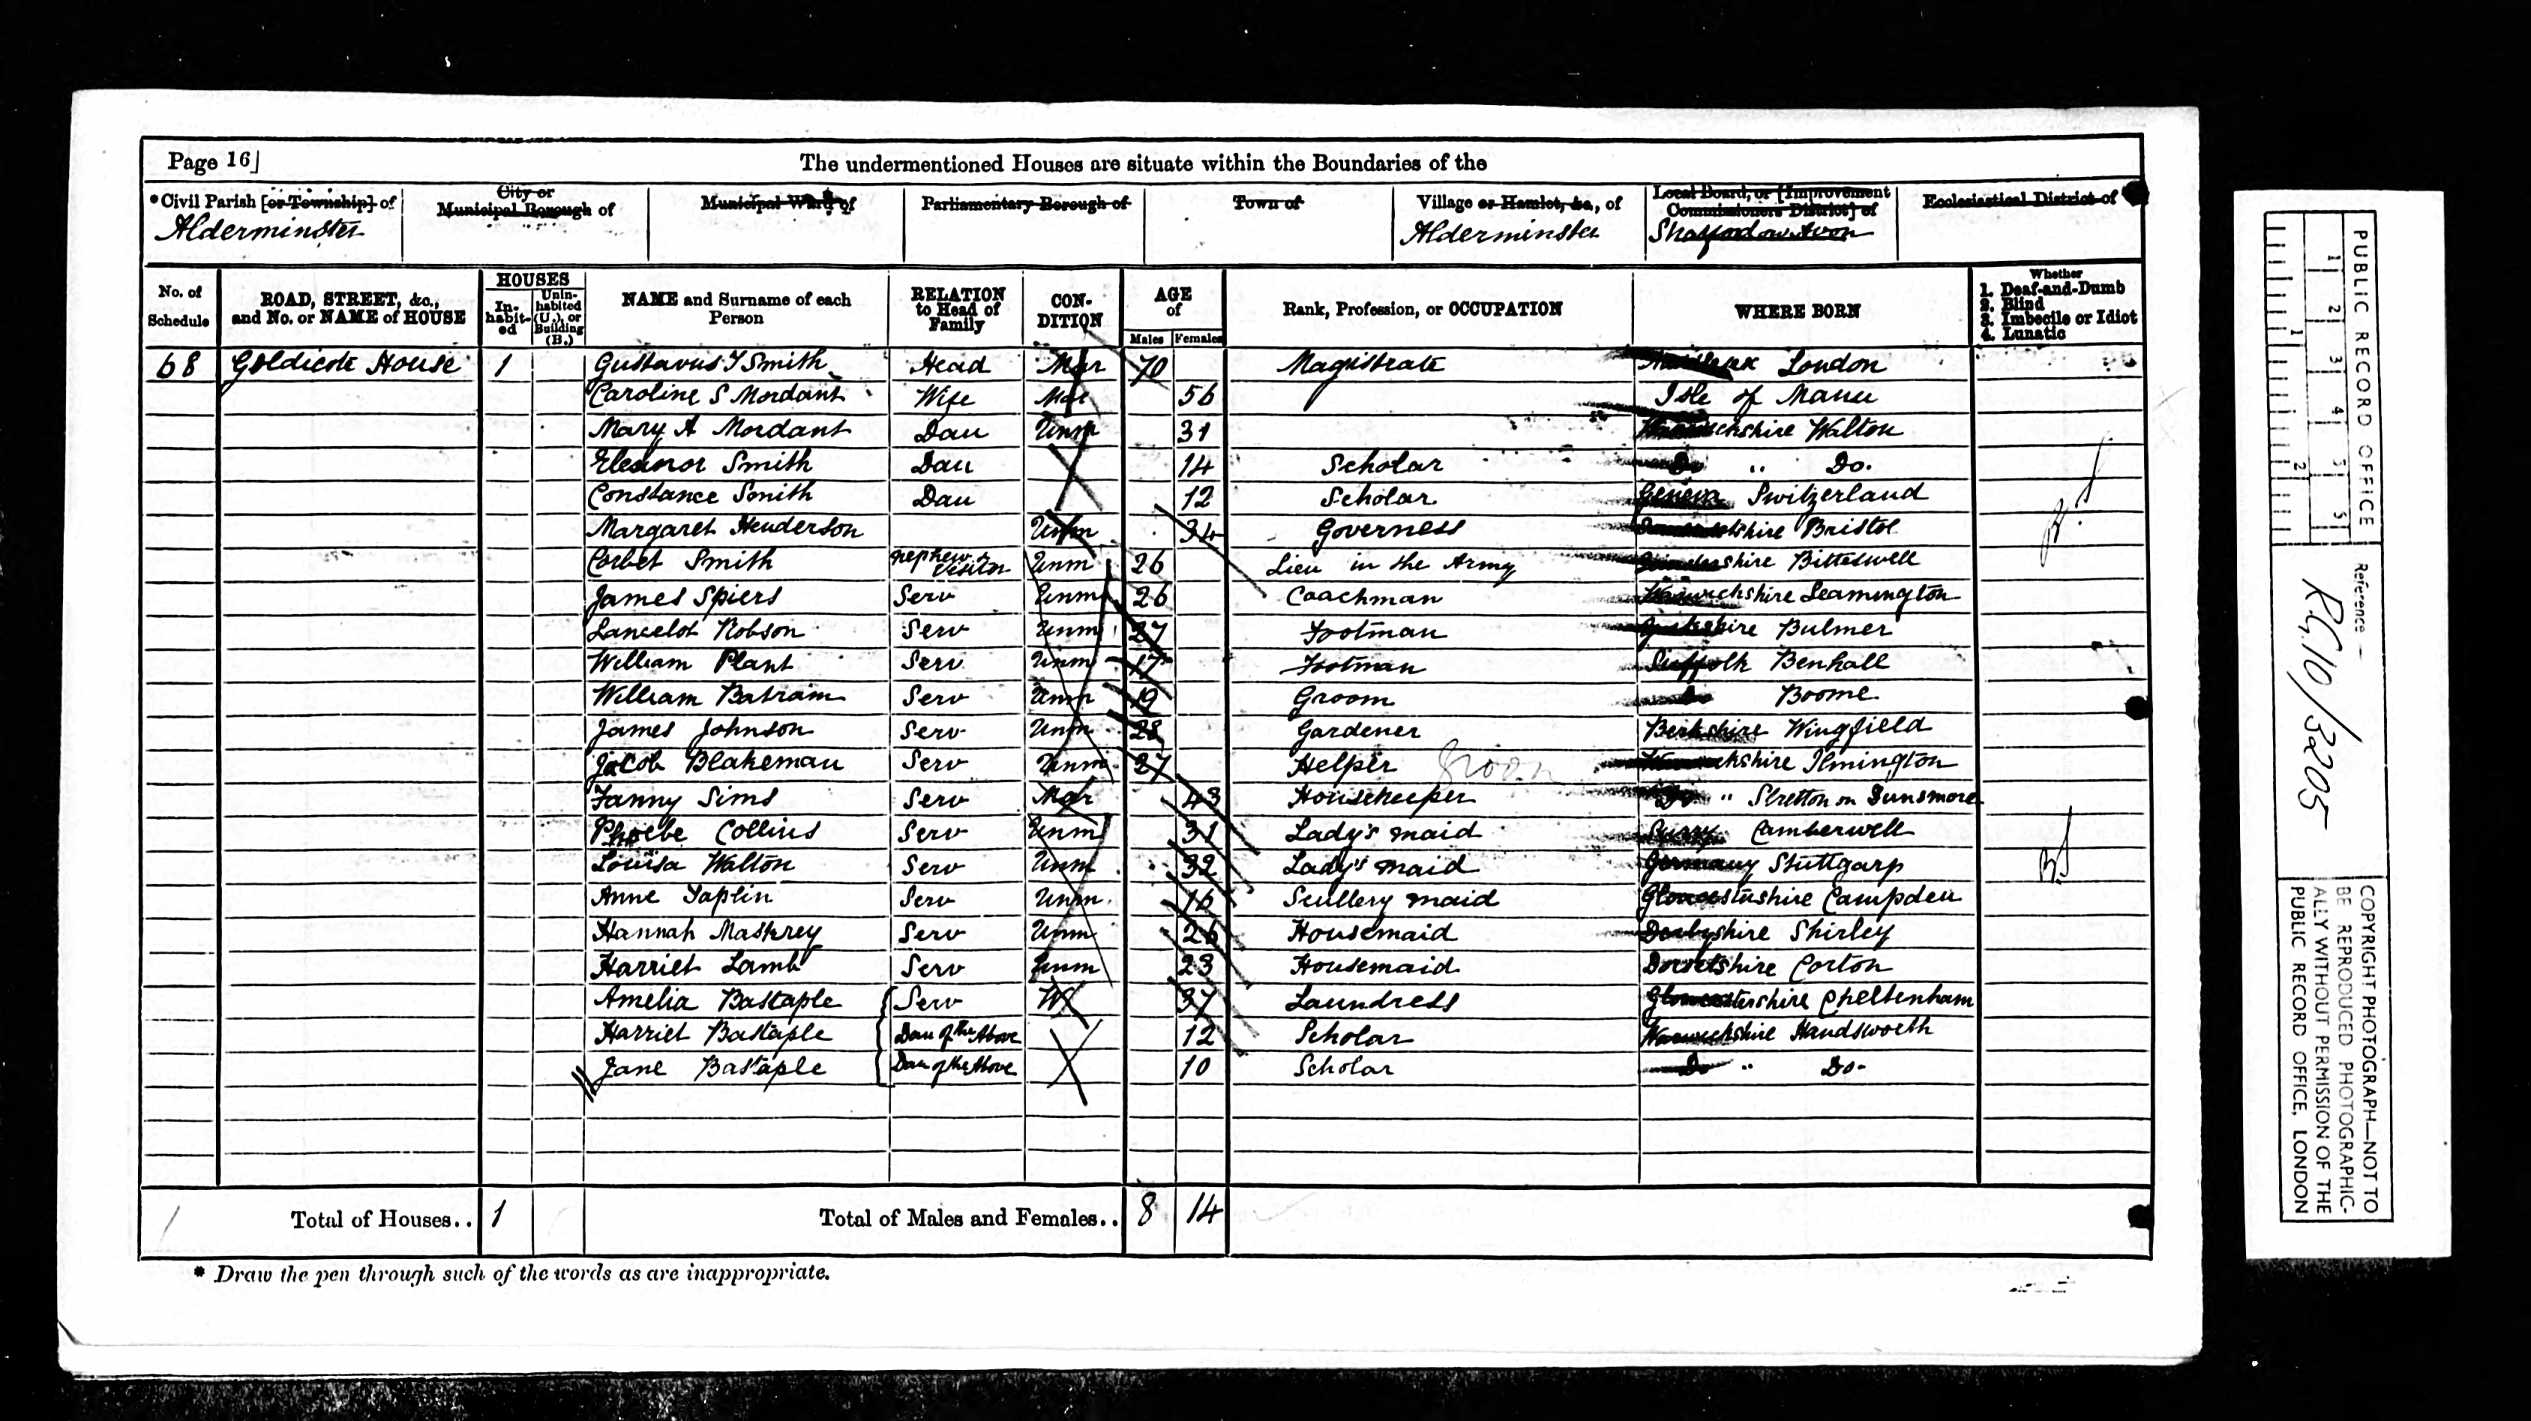 Page 16]
The undermentioned Houses are situate within the Boundaries of the
*Civil Parish [or Township] of
Alderminster
City or Municipal Borough of
Municipal Ward of
Parliamentary Borough of
Town of
Village or Hamlet, &c., of
Alderminster
Local Board, or [Improvement Commissioners District] of
Ecclesiastical District of
No. of Schedule
ROAD, STREET, &c., and No. or NAME of HOUSE
HOUSES
In-habit-ed
Unin-habited (U.), or Building (B.)
NAME and Surname of each Person
RELATION to Head of Family
CON-DITION
AGE of
Males Females
Rank, Profession, or OCCUPATION
WHERE BORN
Whether
1. Deaf-and-Dumb
2. Blind
3. Imbecile or Idiot
4. Lunatic
68 Goldicote House 1 Gustavus T Smith Head Mar 70 Magistrate London
Caroline S Mordant Wife Mar 56 Isle of Mann
Mary A Mordant Dau Unm 31 Walton
Eleanor Smith Dau 14 Scholar Do " Do.
Constance Smith Dau 12 Scholar Geneva Switzerland
Margaret Henderson Unm 34 Governess Bristol
Corbet Smith nephew visitor Unm 26 Lieu in the Army Bitteswell
James Spiers Serv Unm 26 Coachman Warwickshire Leamington
Lancelot Robson Serv Unm 27 Footman Bulmer
William Plant Serv Unm 17 Footman Suffolk Benhall
William Batram Serv Unm 19 Groom Do Boome
James Johnson Serv Unm 28 Gardener Berkshire Wingfield
Jacob Blakeman Serv Unm 27 Helper Groom Ilmington
Fanny Sims Serv Mar 43 Housekeeper Do " Stretton on Dunsmore
Phoebe Collins Serv Unm 31 Lady's maid Surry Camberwell
Louisa Walton Serv Unm 32 Lady's maid Germany Stuttgarp
Anne Taplin Serv Unm 16 Scullery maid Campden
Hannah Maskrey Serv Unm 26 Housemaid Derbyshire Shirley
Harriet Lamb Serv Unm 23 Housemaid Dorsetshire Corton
Amelia Bastaple Serv W 37 Laundress Cheltenham
Harriet Bastaple Dau of the Above 12 Scholar Warwickshire Handsworth
Jane Bastaple Dau of the Above 10 Scholar Do " Do-
Total of Houses.. 1
Total of Males and Females.. 8 14
* Draw the pen through such of the words as are inappropriate.
PUBLIC RECORD OFFICE
1 2 3 4 5
1 2
Reference —
R.G. 10/3205
COPYRIGHT PHOTOGRAPH—NOT TO
BE REPRODUCED PHOTOGRAPHIC-
ALLY WITHOUT PERMISSION OF THE
PUBLIC RECORD OFFICE, LONDON